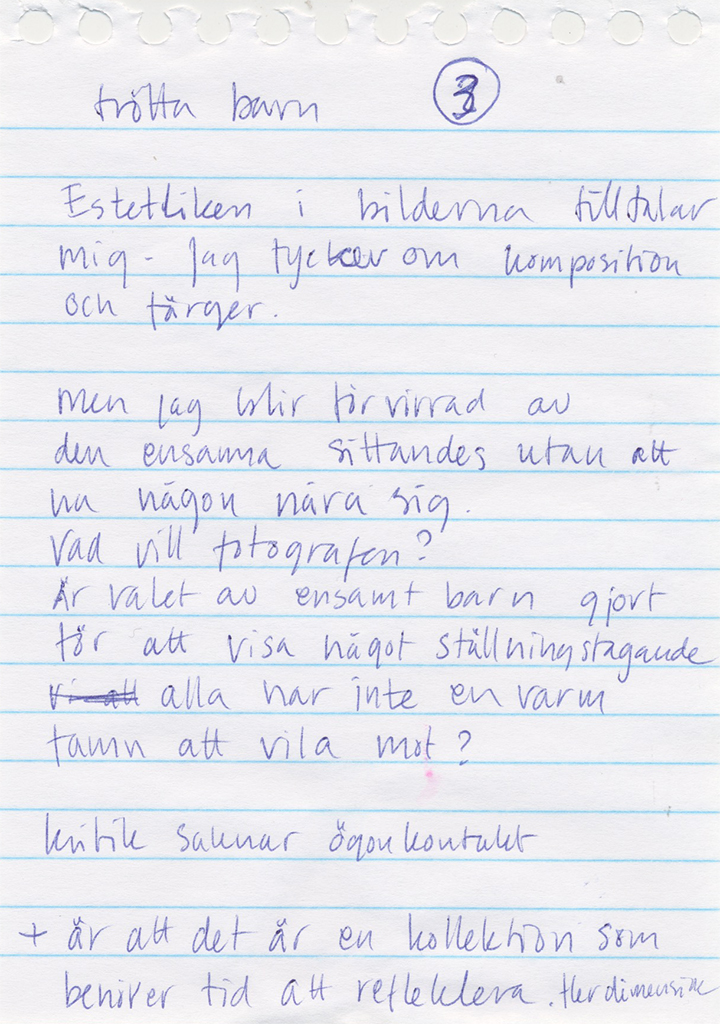 trötta barn 3
Estetiken i bilderna tilltalar
mig - Jag tycker om komposition
och färger.
Men jag blir förvirrad av
den ensamma sittandes utan att
ha någon nära sig.
Vad vill fotografen?
Är valet av ensamt barn gjort
för att visa något ställningstagande
alla har inte en varm
famn att vila mot?
kritik saknar ögonkontakt
+ är att det är en kollektion som
behöver tid att reflektera.